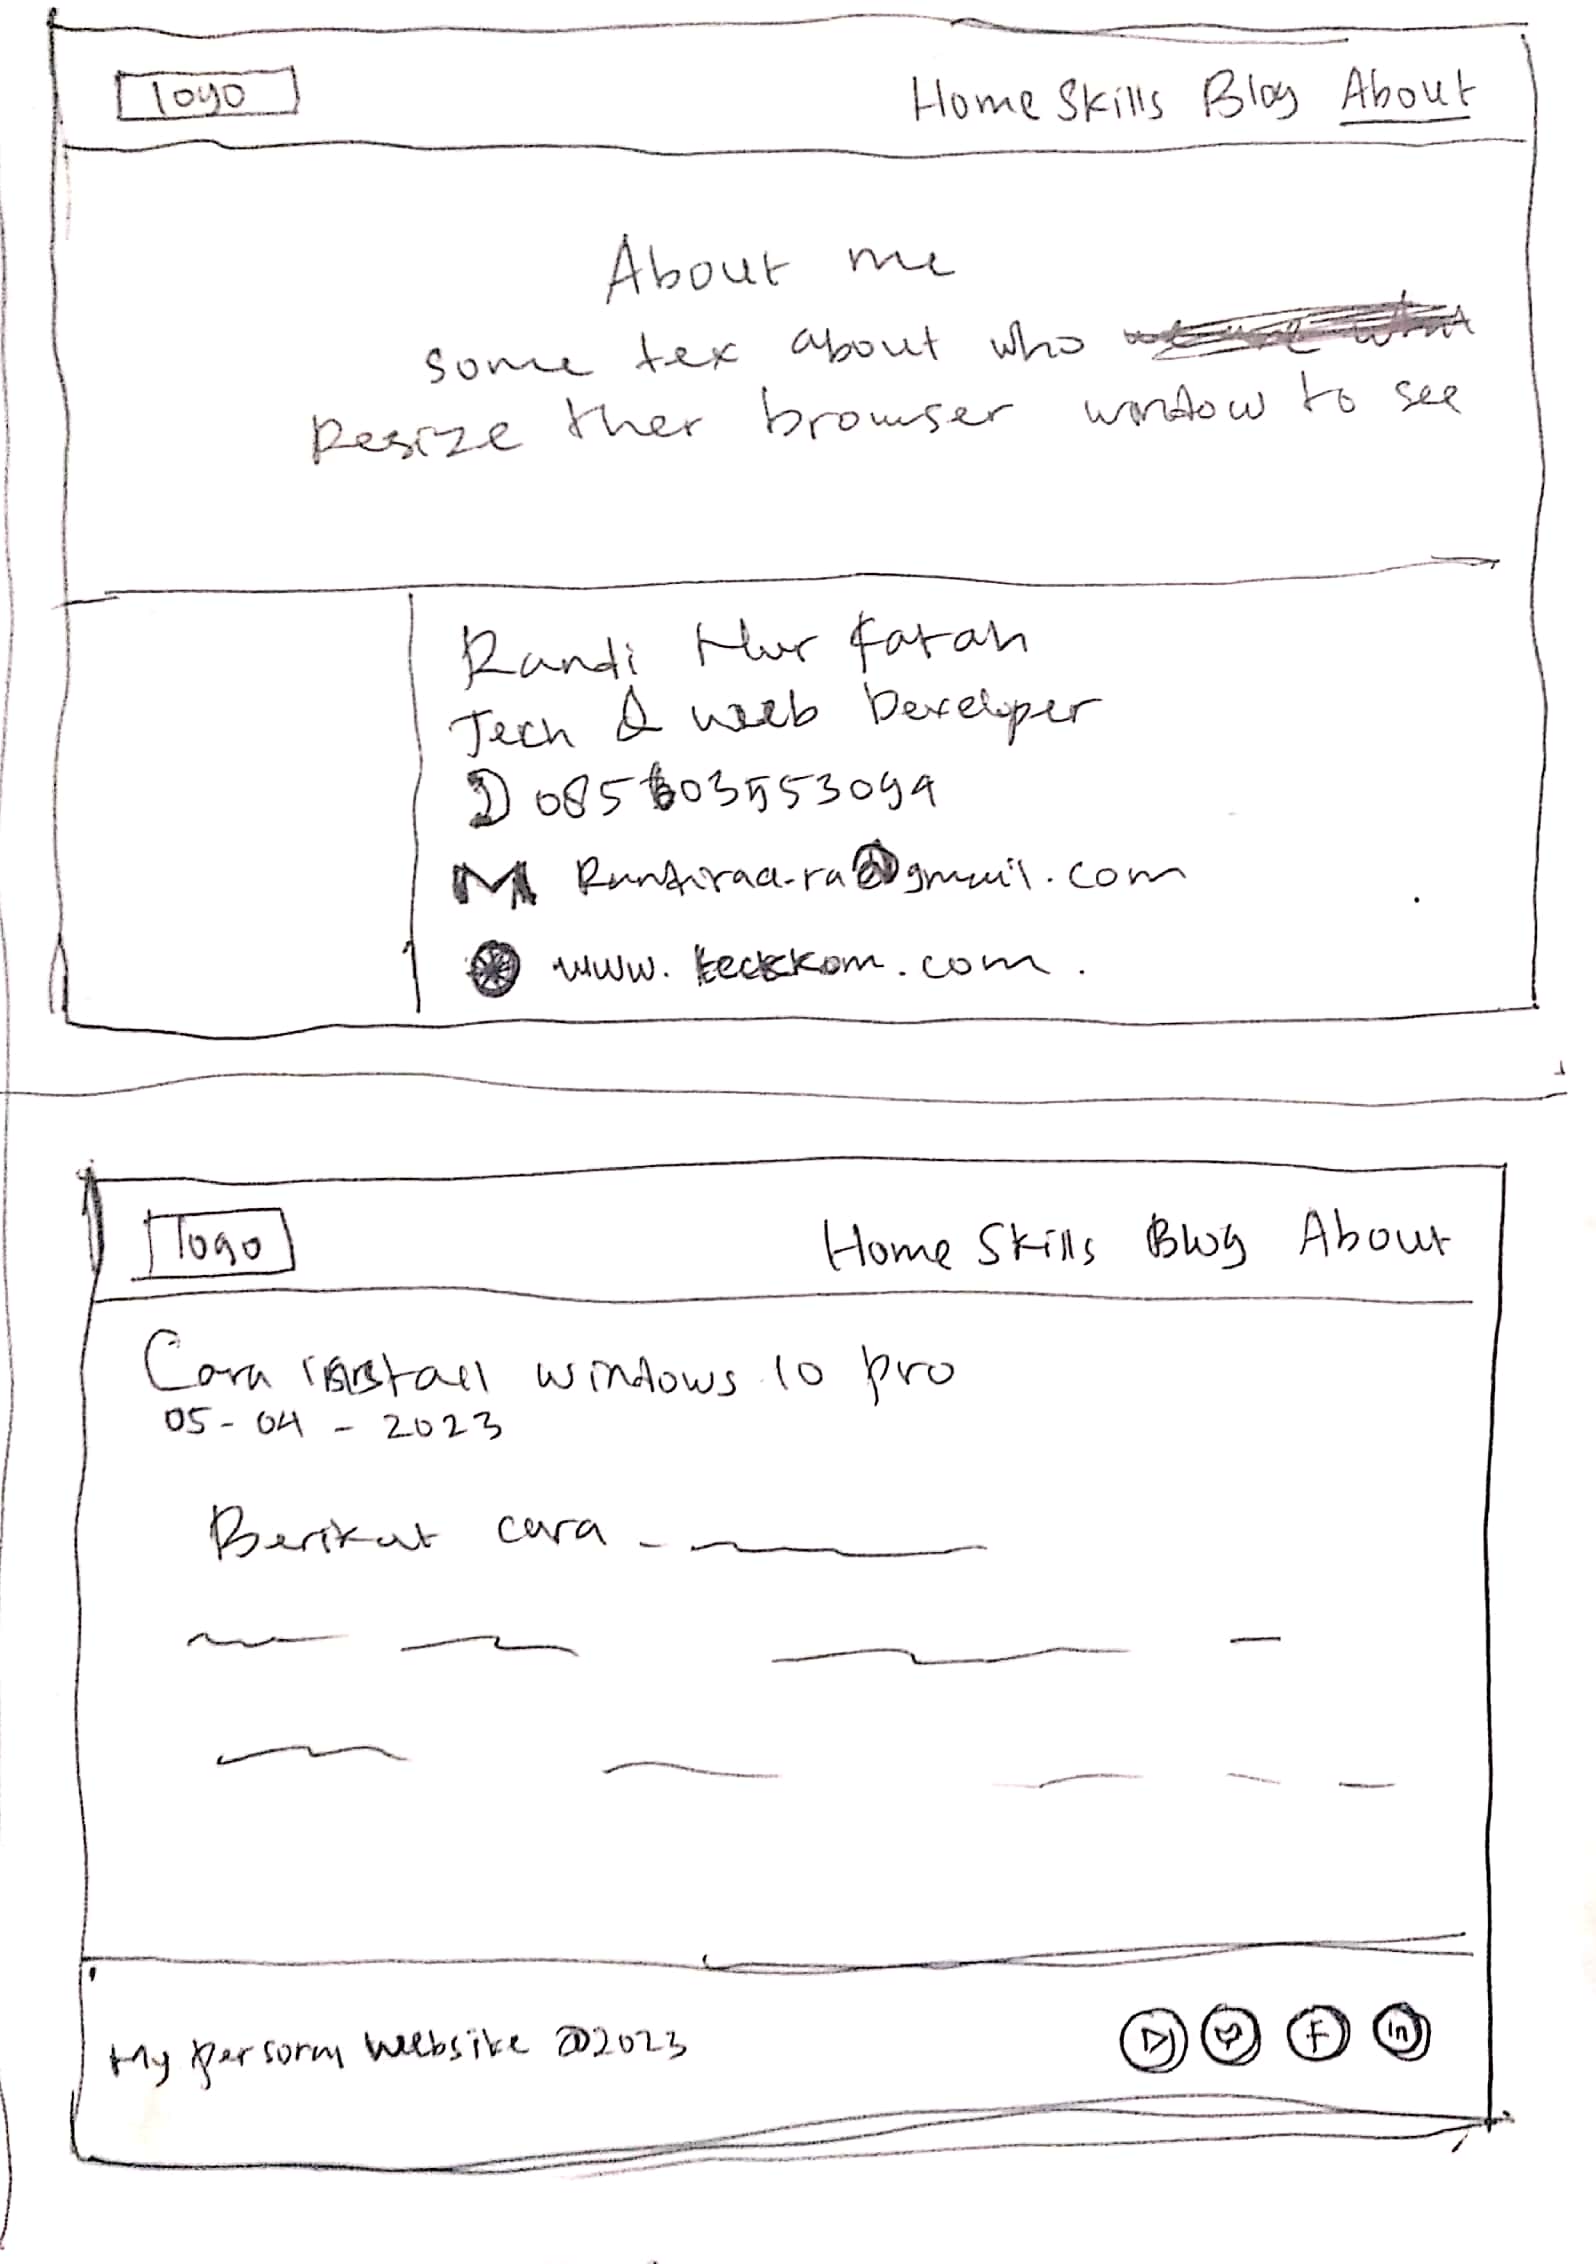 logo
Home Skills Blog About
About me
some tex about who
Resize ther browser window to see
Randi Nur Fatah
Tech & web Developer
085603553099
@gmail.com
www.teckkom.com.
logo
Home Skills Blog About
Cara install windows 10 pro
05-04-2023
Berikut cara
My persorm website @2023
in